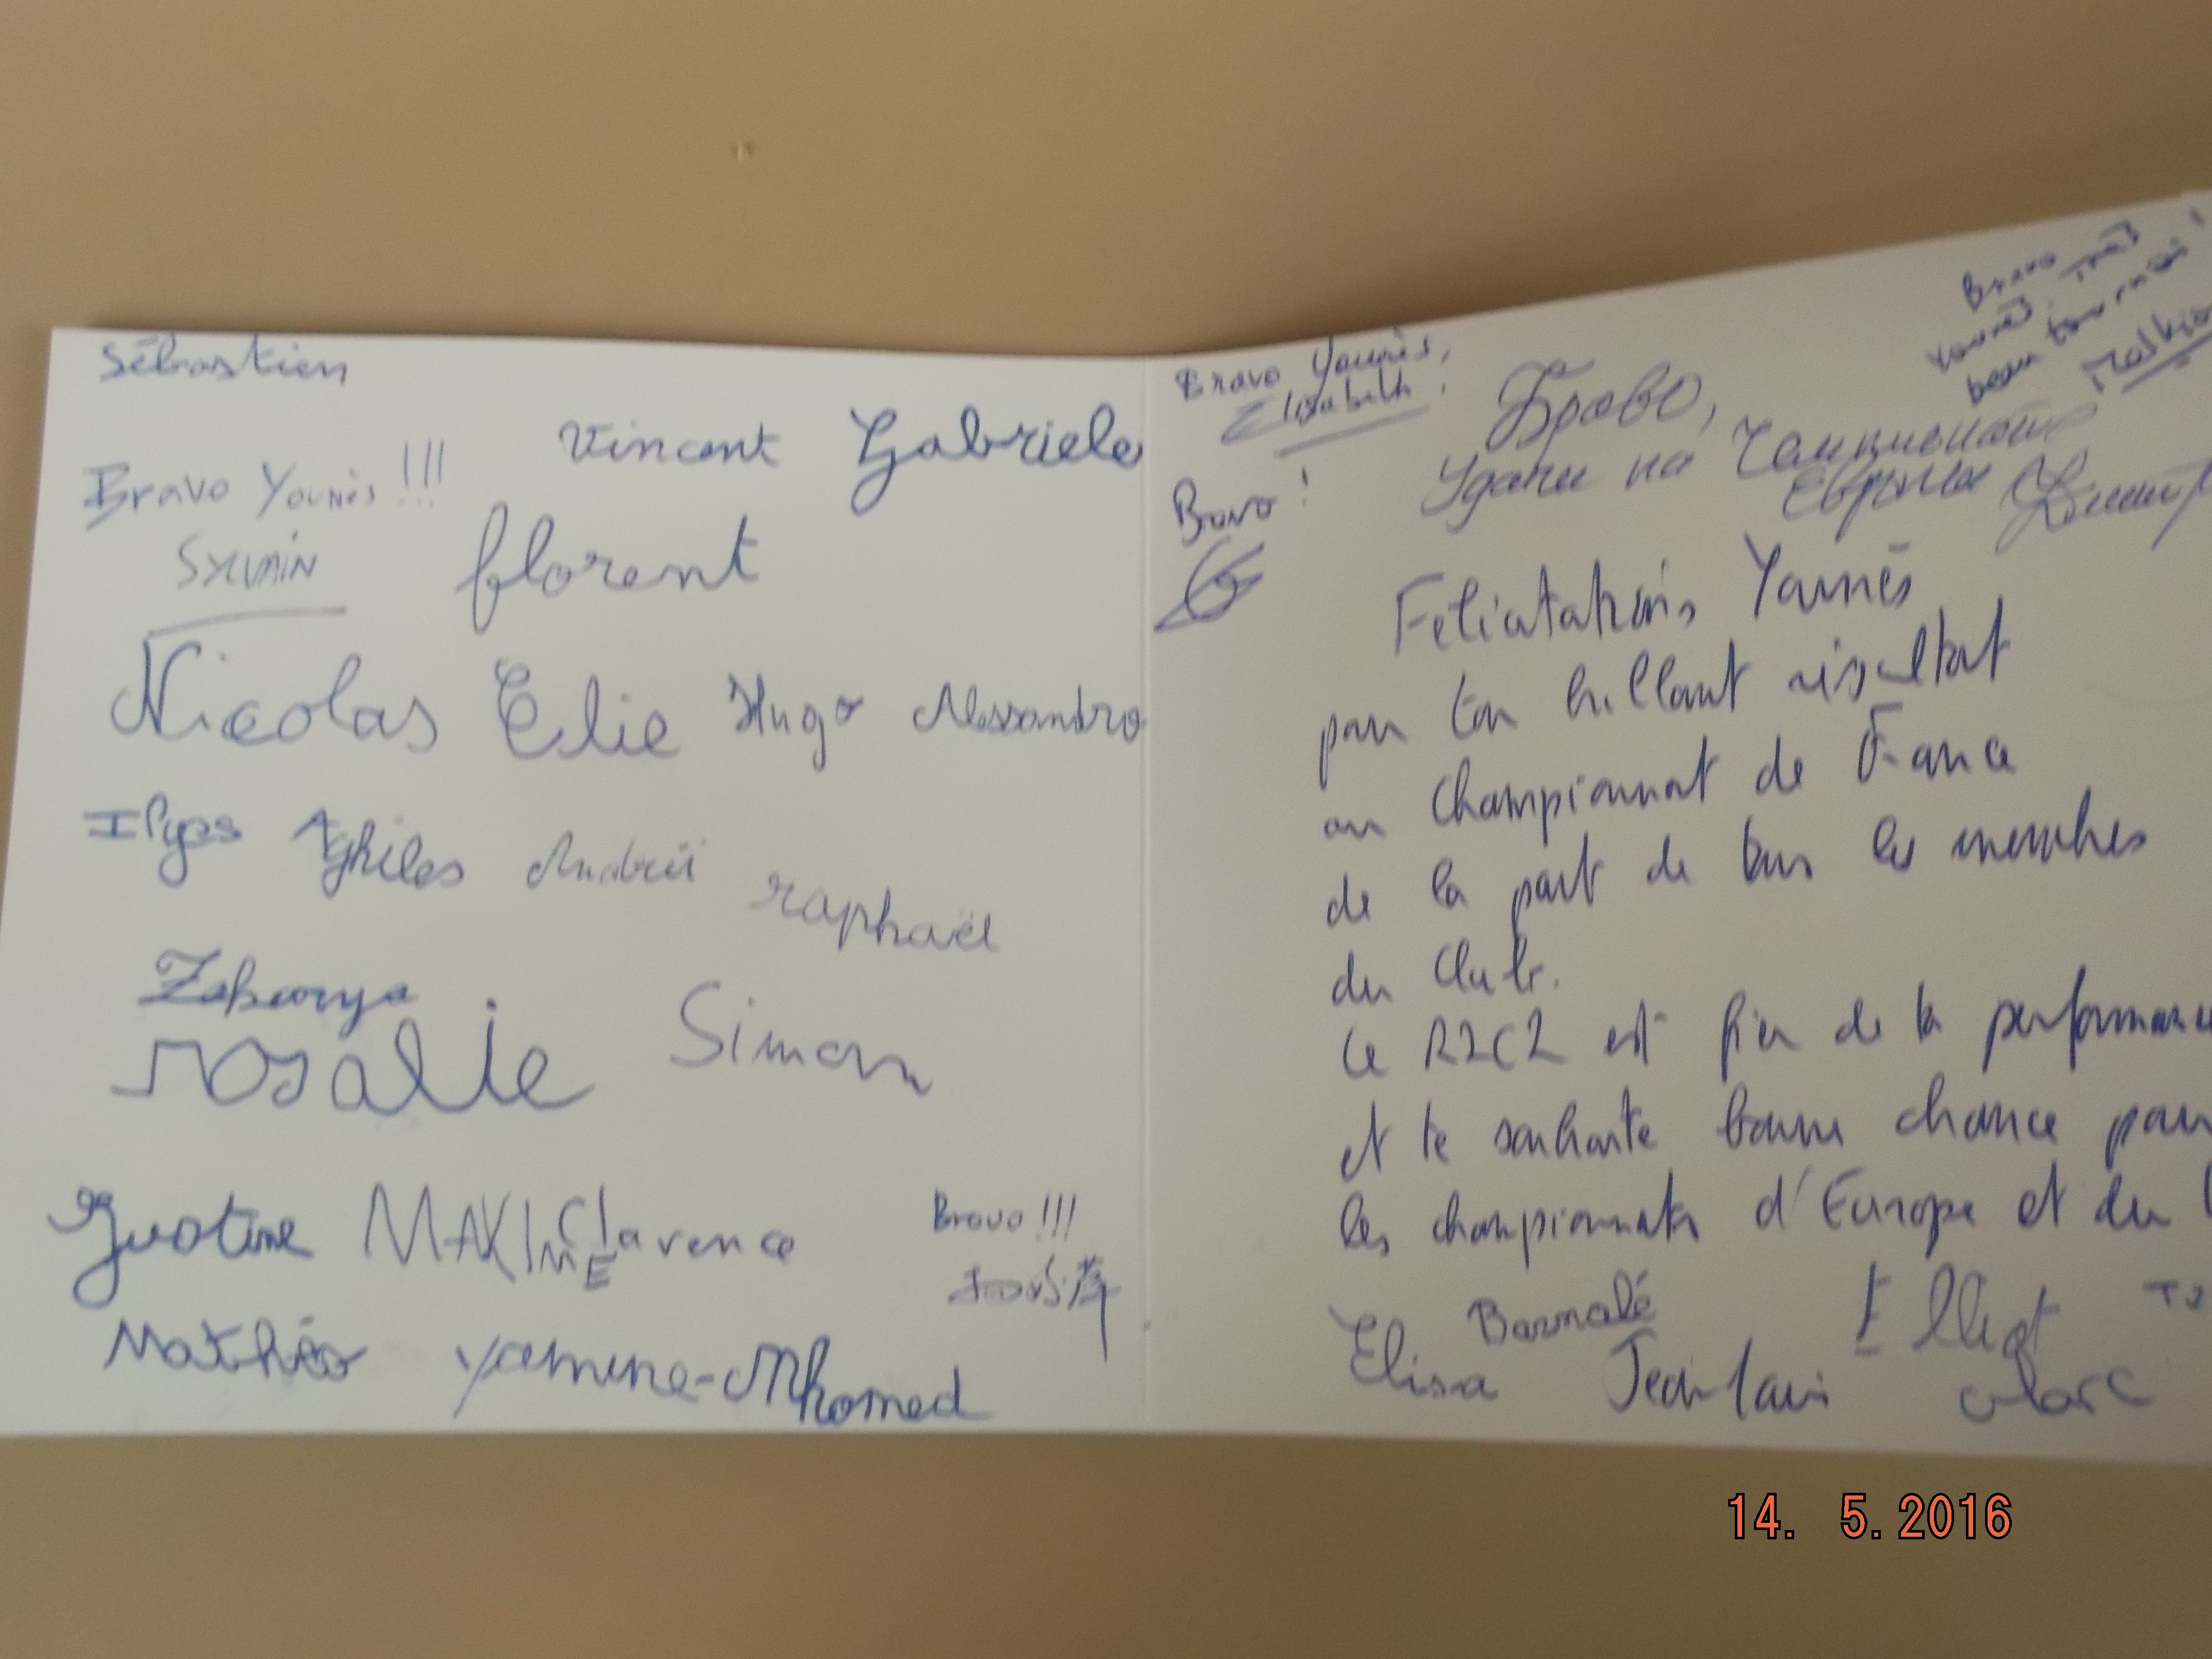 Sébastien
Vincent Gabriele
Bravo Younès !!!
SYLVAIN
florent
Nicolas Elie Hugo Alessandro
Ilyas Aghiles Andreï
raphaël
Zakarya
rosalie Simon
Justine MAXIME Clarence
Bravo !!!
Mathéo Yamine-Mhomed
Bravo Younès,
Elisabeth !
Bravo !
Браво,
Удачи на Чемпионате
Европы
Bravo
Younès, très
beau tournoi !
Félicitations Younès
pour ton brillant résultat
au championnat de France
de la part de tous les membres
du Club.
Le R2C2 est fier de la
et te souhaite bonne chance pour
les championnats d'Europe et du
Elisa Barnabé Elliot
Jean-Louis Marc
14. 5.2016